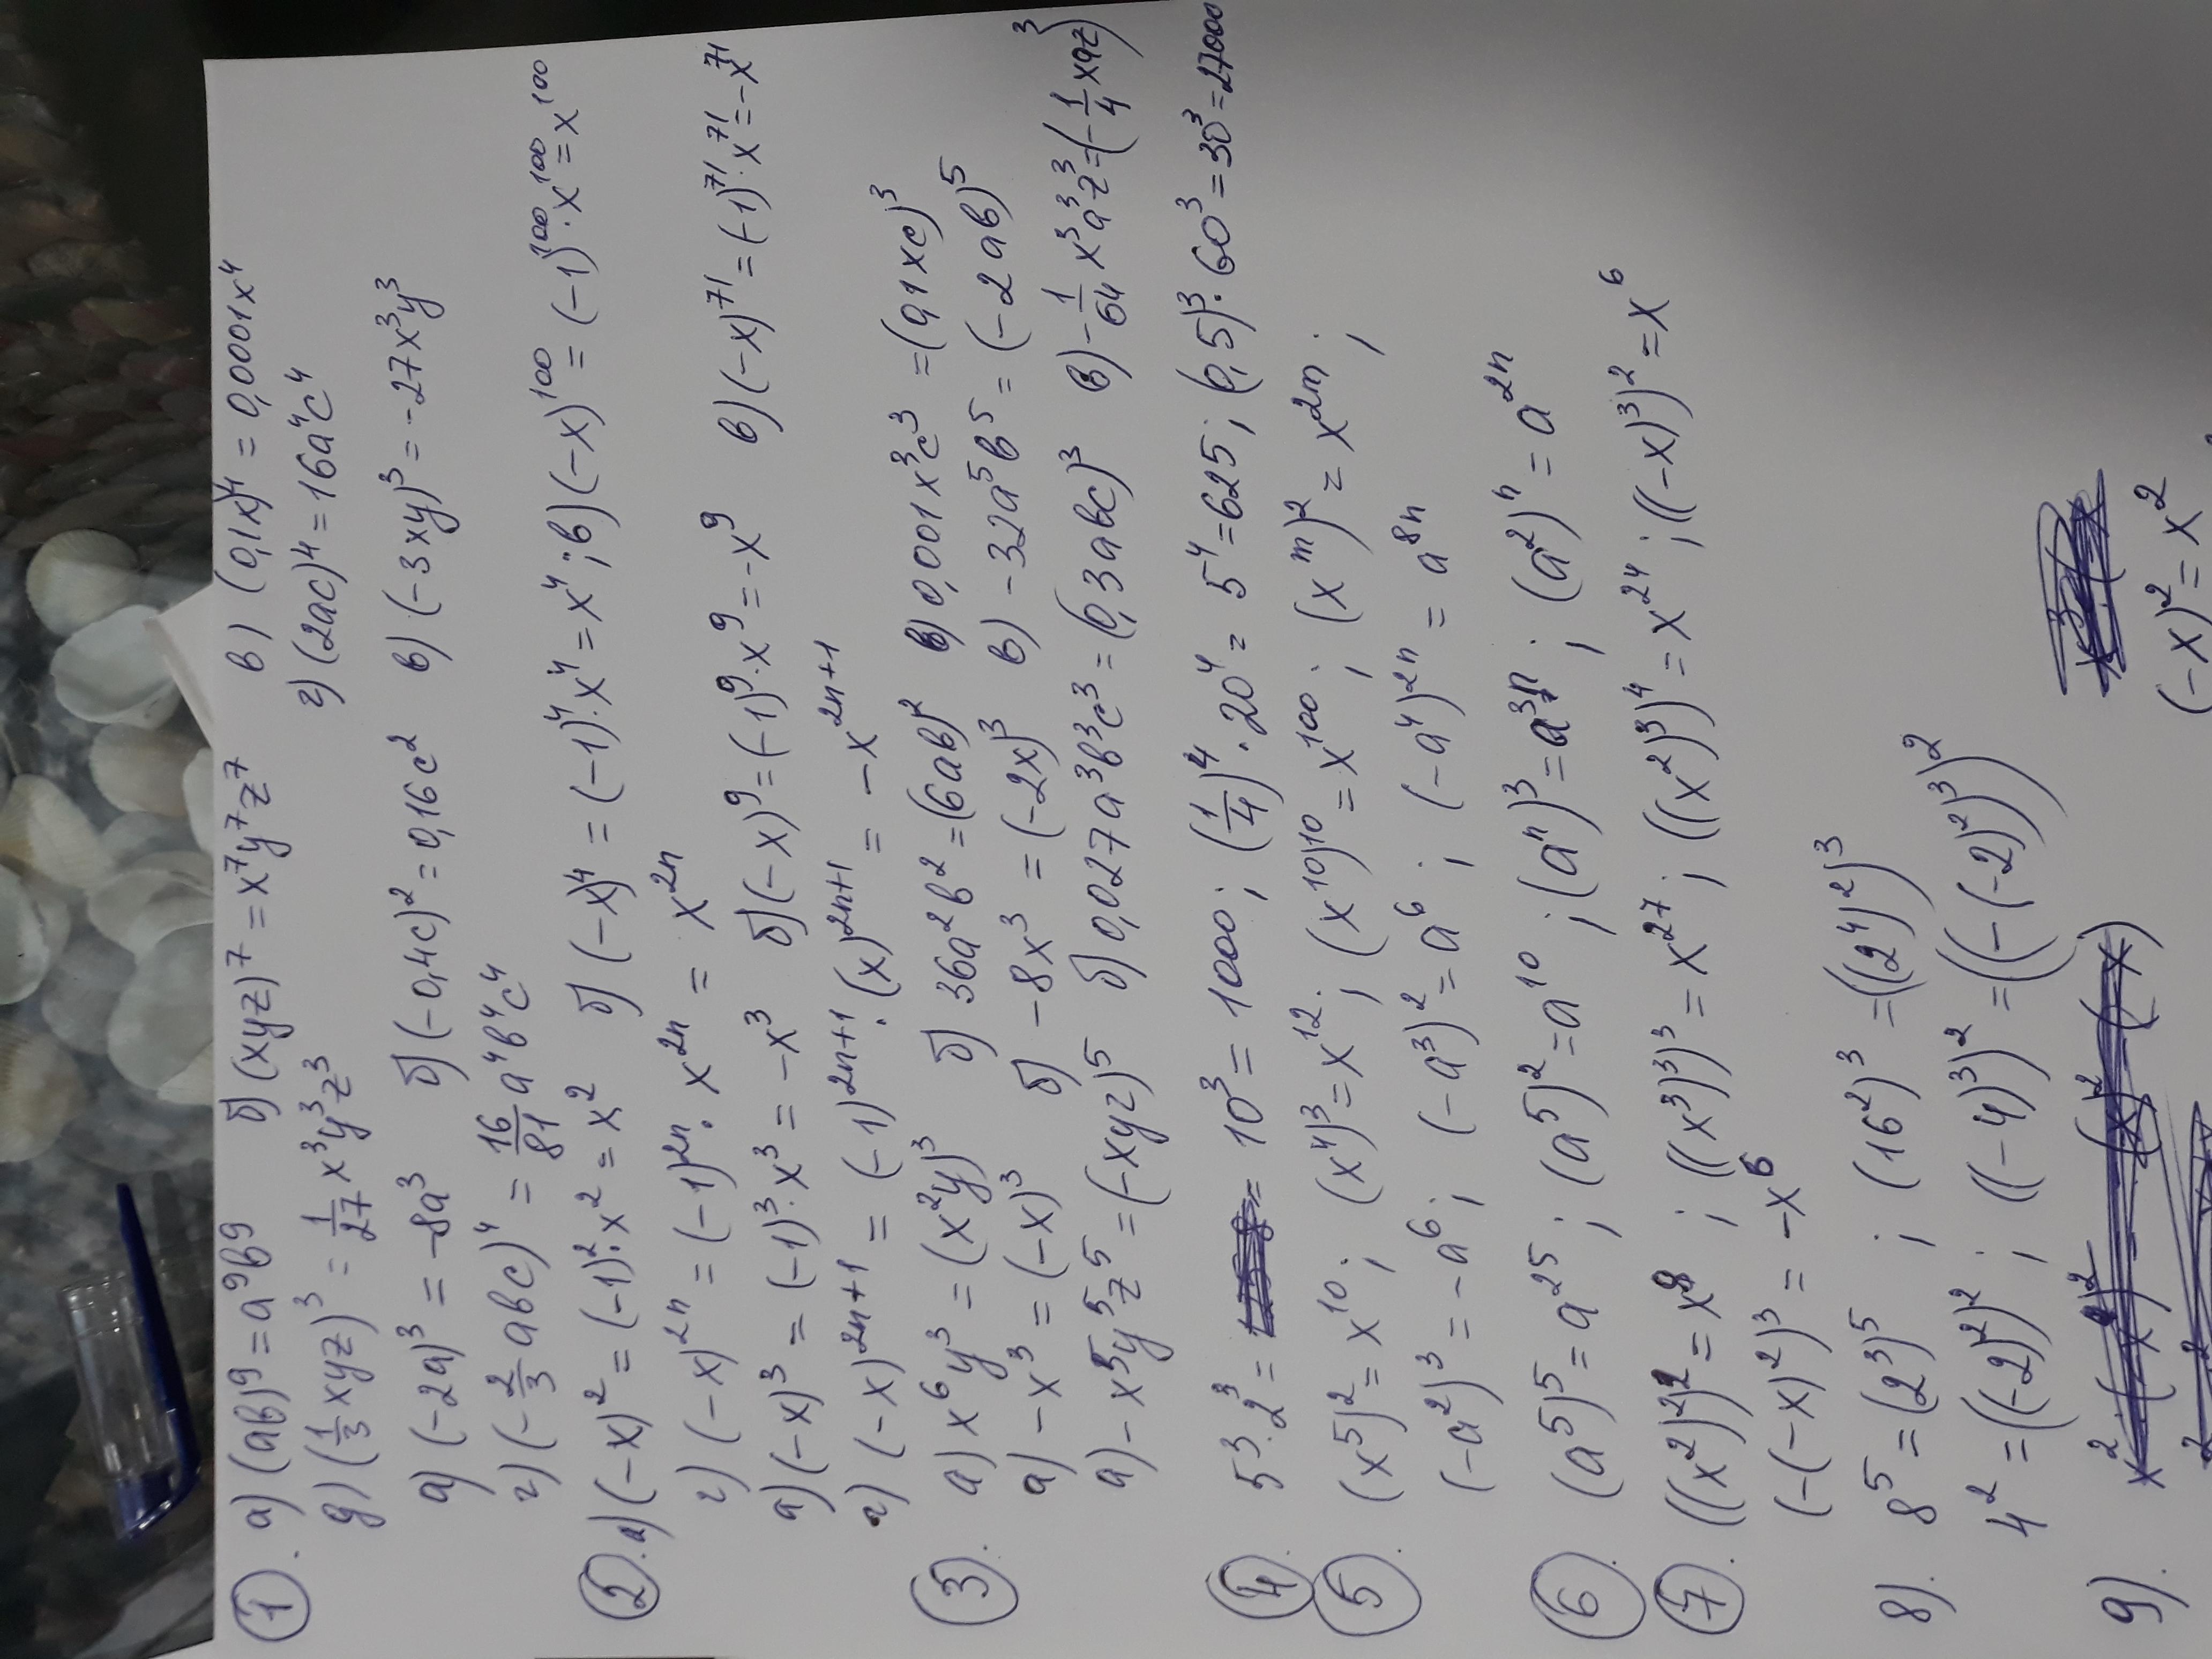 1. а) (ab)⁹ = a⁹b⁹ б) (xyz)⁷ = x⁷y⁷z⁷ в) (0,1x)⁴ = 0,0001x⁴
д) (1/3 xyz)³ = 1/27 x³y³z³ г) (2ac)⁴ = 16a⁴c⁴
а) (-2a)³ = -8a³ б) (-0,4c)² = 0,16c² в) (-3xy)³ = -27x³y³
г) (-2/3 abc)⁴ = 16/81 a⁴b⁴c⁴
2. а) (-x)² = (-1)²·x² = x² б) (-x)⁴ = (-1)⁴·x⁴ = x⁴; в) (-x)¹⁰⁰ = (-1)¹⁰⁰·x¹⁰⁰ = x¹⁰⁰
г) (-x)²ⁿ = (-1)²ⁿ·x²ⁿ = x²ⁿ
а) (-x)³ = (-1)³·x³ = -x³ б) (-x)⁹ = (-1)⁹·x⁹ = -x⁹ в) (-x)⁷¹ = (-1)⁷¹·x⁷¹ = -x⁷¹
г) (-x)²ⁿ⁺¹ = (-1)²ⁿ⁺¹·(x)²ⁿ⁺¹ = -x²ⁿ⁺¹
3. а) x⁶y³ = (x²y)³ б) 36a²b² = (6ab)² в) 0,001x³c³ = (0,1xc)³
а) -x³ = (-x)³ б) -8x³ = (-2x)³ в) -32a⁵b⁵ = (-2ab)⁵
а) -x⁵y⁵z⁵ = (-xyz)⁵ б) 0,027a³b³c³ = (0,3abc)³ в) -1/64 x³a³z³ = (-1/4 xaz)³
4. 5³·2³ = 10³ = 1000; (1/4)⁴·20⁴ = 5⁴ = 625; (0,5)³·60³ = 30³ = 27000
5. (x⁵)² = x¹⁰; (x⁴)³ = x¹²; (x¹⁰)¹⁰ = x¹⁰⁰; (xᵐ)² = x²ᵐ;
(-a²)³ = -a⁶; (-a³)² = a⁶; (-a⁴)²ⁿ = a⁸ⁿ
6. (a⁵)⁵ = a²⁵; (a⁵)² = a¹⁰; (aⁿ)³ = a³ⁿ; (a²)ⁿ = a²ⁿ
7. ((x²)²)² = x⁸; ((x³)³)³ = x²⁷; ((x²)³)⁴ = x²⁴; ((-x)³)² = x⁶
(-(-x)²)³ = -x⁶
8). 8⁵ = (2³)⁵; (16²)³ = ((2⁴)²)³
4² = ((-2)²)²; ((-4)³)² = ((-(-2)²)³)²
9). (-x)² = x²